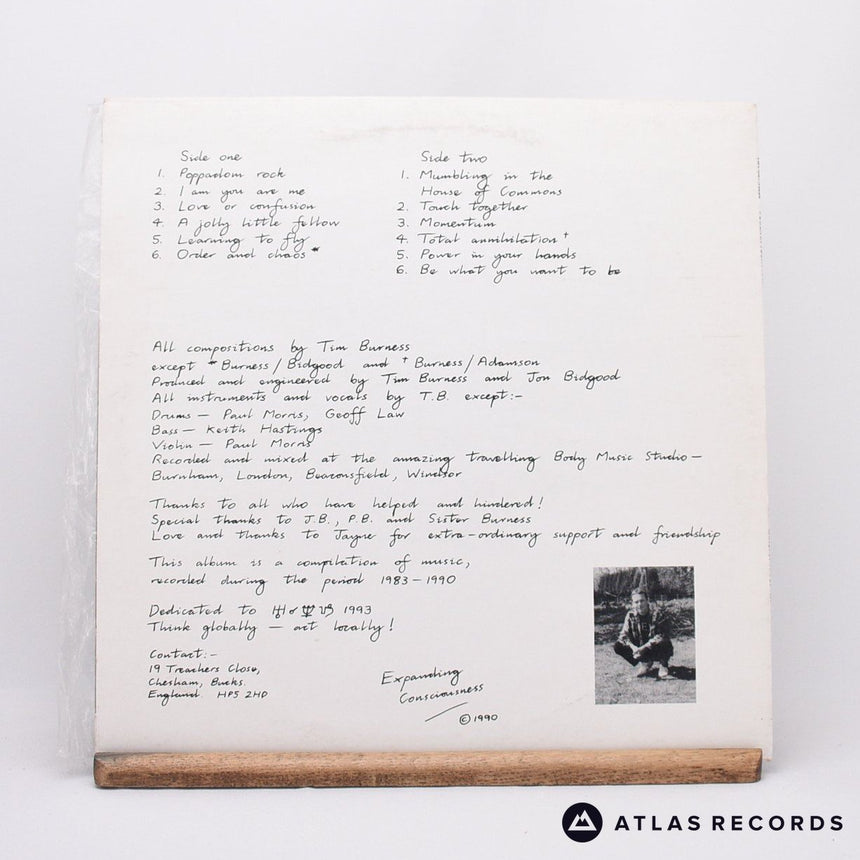 Side one
1. Poppadom rock
2. I am you are me
3. Love or confusion
4. A jolly little fellow
5. Learning to fly
6. Order and chaos *
Side two
1. Mumbling in the
House of Commons
2. Touch together
3. Momentum
4. Total annihilation †
5. Power in your hands
6. Be what you want to be
All compositions by Tim Burness
except * Burness / Bidgood and † Burness / Adamson
Produced and engineered by Tim Burness and Jon Bidgood
All instruments and vocals by T.B. except:-
Drums — Paul Morris, Geoff Law
Bass — Keith Hastings
Violin — Paul Morris
Recorded and mixed at the amazing travelling Body Music Studio —
Burnham, London, Beaconsfield, Windsor
Thanks to all who have helped and hindered!
Special thanks to J.B., P.B. and Sister Burness
Love and thanks to Jayne for extra-ordinary support and friendship
This album is a compilation of music,
recorded during the period 1983-1990
Dedicated to ♅☌♆♑ 1993
Think globally — act locally!
Contact:-
19 Treachers Close,
Chesham, Bucks.
England. HP5 2HD
Expanding
Consciousness
© 1990
ATLAS RECORDS